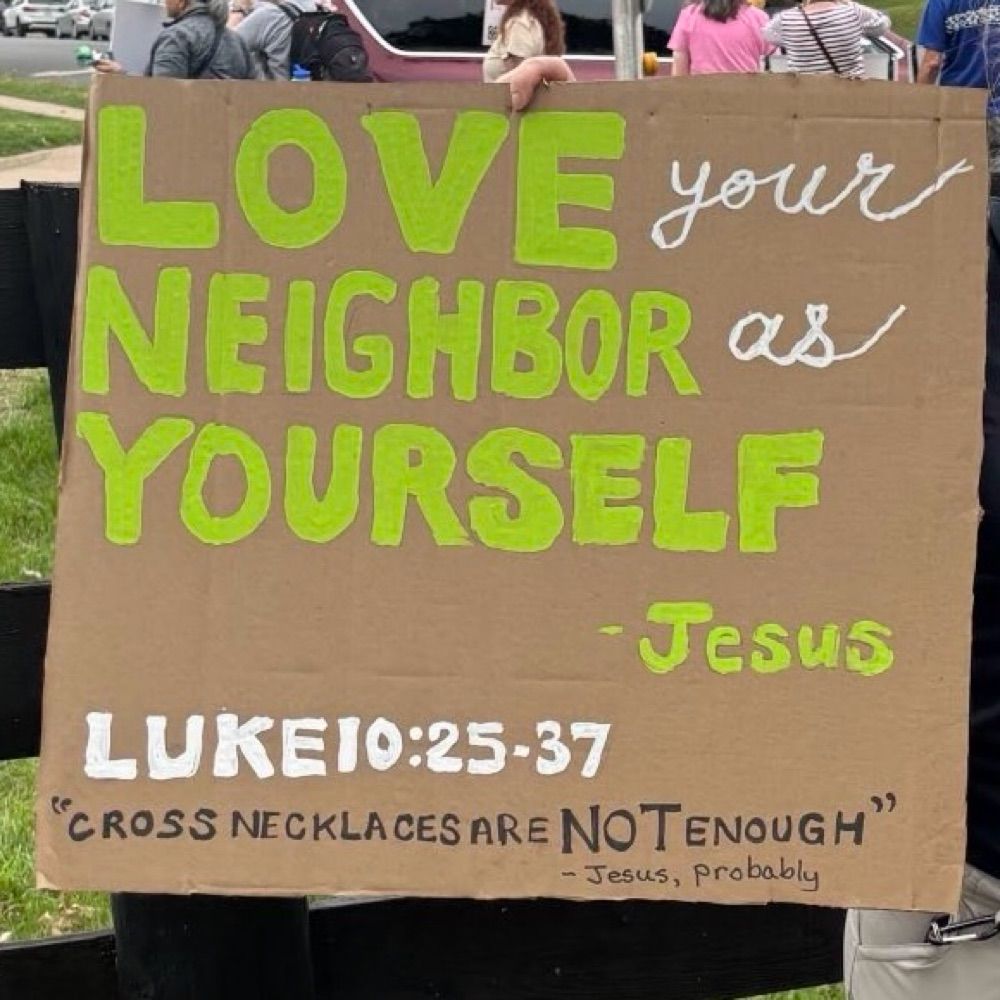 LOVE your
NEIGHBOR as
YOURSELF
-Jesus
LUKE 10:25-37
"CROSS NECKLACES ARE NOT ENOUGH"
- Jesus, probably